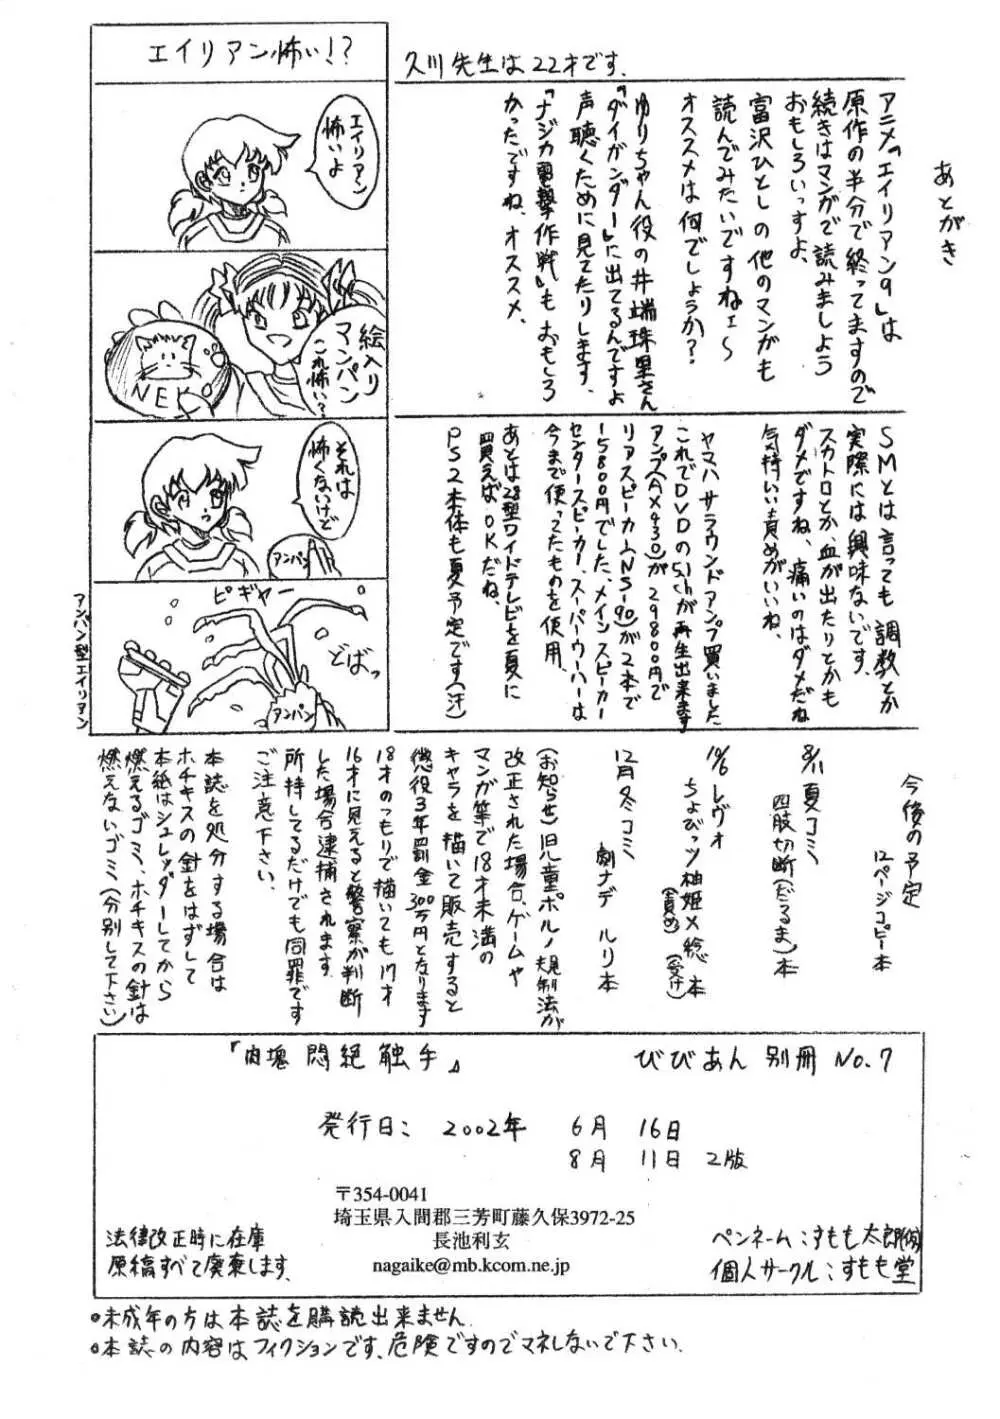 エイリアン怖い！？
エイリアン
怖いよ
絵入り
マンパン
これ怖い？
NEK
それは
怖くないけど
アンパン
ピギャー
どばっ
アンパン
アンパン型エイリアン
久川先生は22才です．
あとがき
アニメ『エイリアン9』は
原作の半分で終ってますので
続きはマンガで読みましょう
おもしろいっすよ、
富沢ひとしの他のマンガも
読んでみたいですねェ〜
オススメは何でしょうか？
ゆりちゃん役の井端珠里さん
『ダイガンダー』に出てるんですよ
声聴くために見てたりします、
『ナジカ電撃作戦』もおもしろ
かったですね、オススメ、
SMとは言っても調教とか
実際には興味ないです、
スカトロとか、血が出たりとかも
ダメですね、痛いのはダメだね
気持いい責めがいいね、
ヤマハサラウンドアンプ買いました
これでDVDの5.1chが再生出来ます
アンプ(AX430)が29800円で
リアスピーカー(NS-90)が2本で
15800円でした、メインスピーカー
センタースピーカー、スーパーウーハーは
今まで使ってたものを使用、
あとは28型ワイドテレビを夏に
買えばOKだね、
PS2本体も夏予定です(汗)
今後の予定
12ページコピー本
8/11夏コミ
四肢切断(だるま)本
10/6レヴォ
ちょびッツ柚姫×稔本
(責め)(受け)
12月冬コミ
劇ナデ ルリ本
(お知らせ)旧児童ポルノ規制法が
改正された場合、ゲームや
マンガ等で18才未満の
キャラを描いて販売すると
懲役3年罰金300万円となります
18才のつもりで描いても17才
16才に見えると警察が判断
した場合逮捕されます
所持してるだけでも同罪です
ご注意下さい．
本誌を処分する場合は
ホチキスの針をはずして
本紙はシュレッダーしてから
燃えるゴミ、ホチキスの針は
燃えないゴミ(分別して下さい)
『肉塊悶絶触手』 びびあん別冊 No.7
発行日： 2002年 6月 16日
8月 11日 2版
〒354-0041
埼玉県入間郡三芳町藤久保3972-25
長池利玄
nagaike@mb.kcom.ne.jp
法律改正時に在庫
原稿すべて廃棄します．
ペンネーム：すもも太郎(仮)
個人サークル：すもも堂
•未成年の方は本誌を購読出来ません．
•本誌の内容はフィクションです、危険ですのでマネしないで下さい．